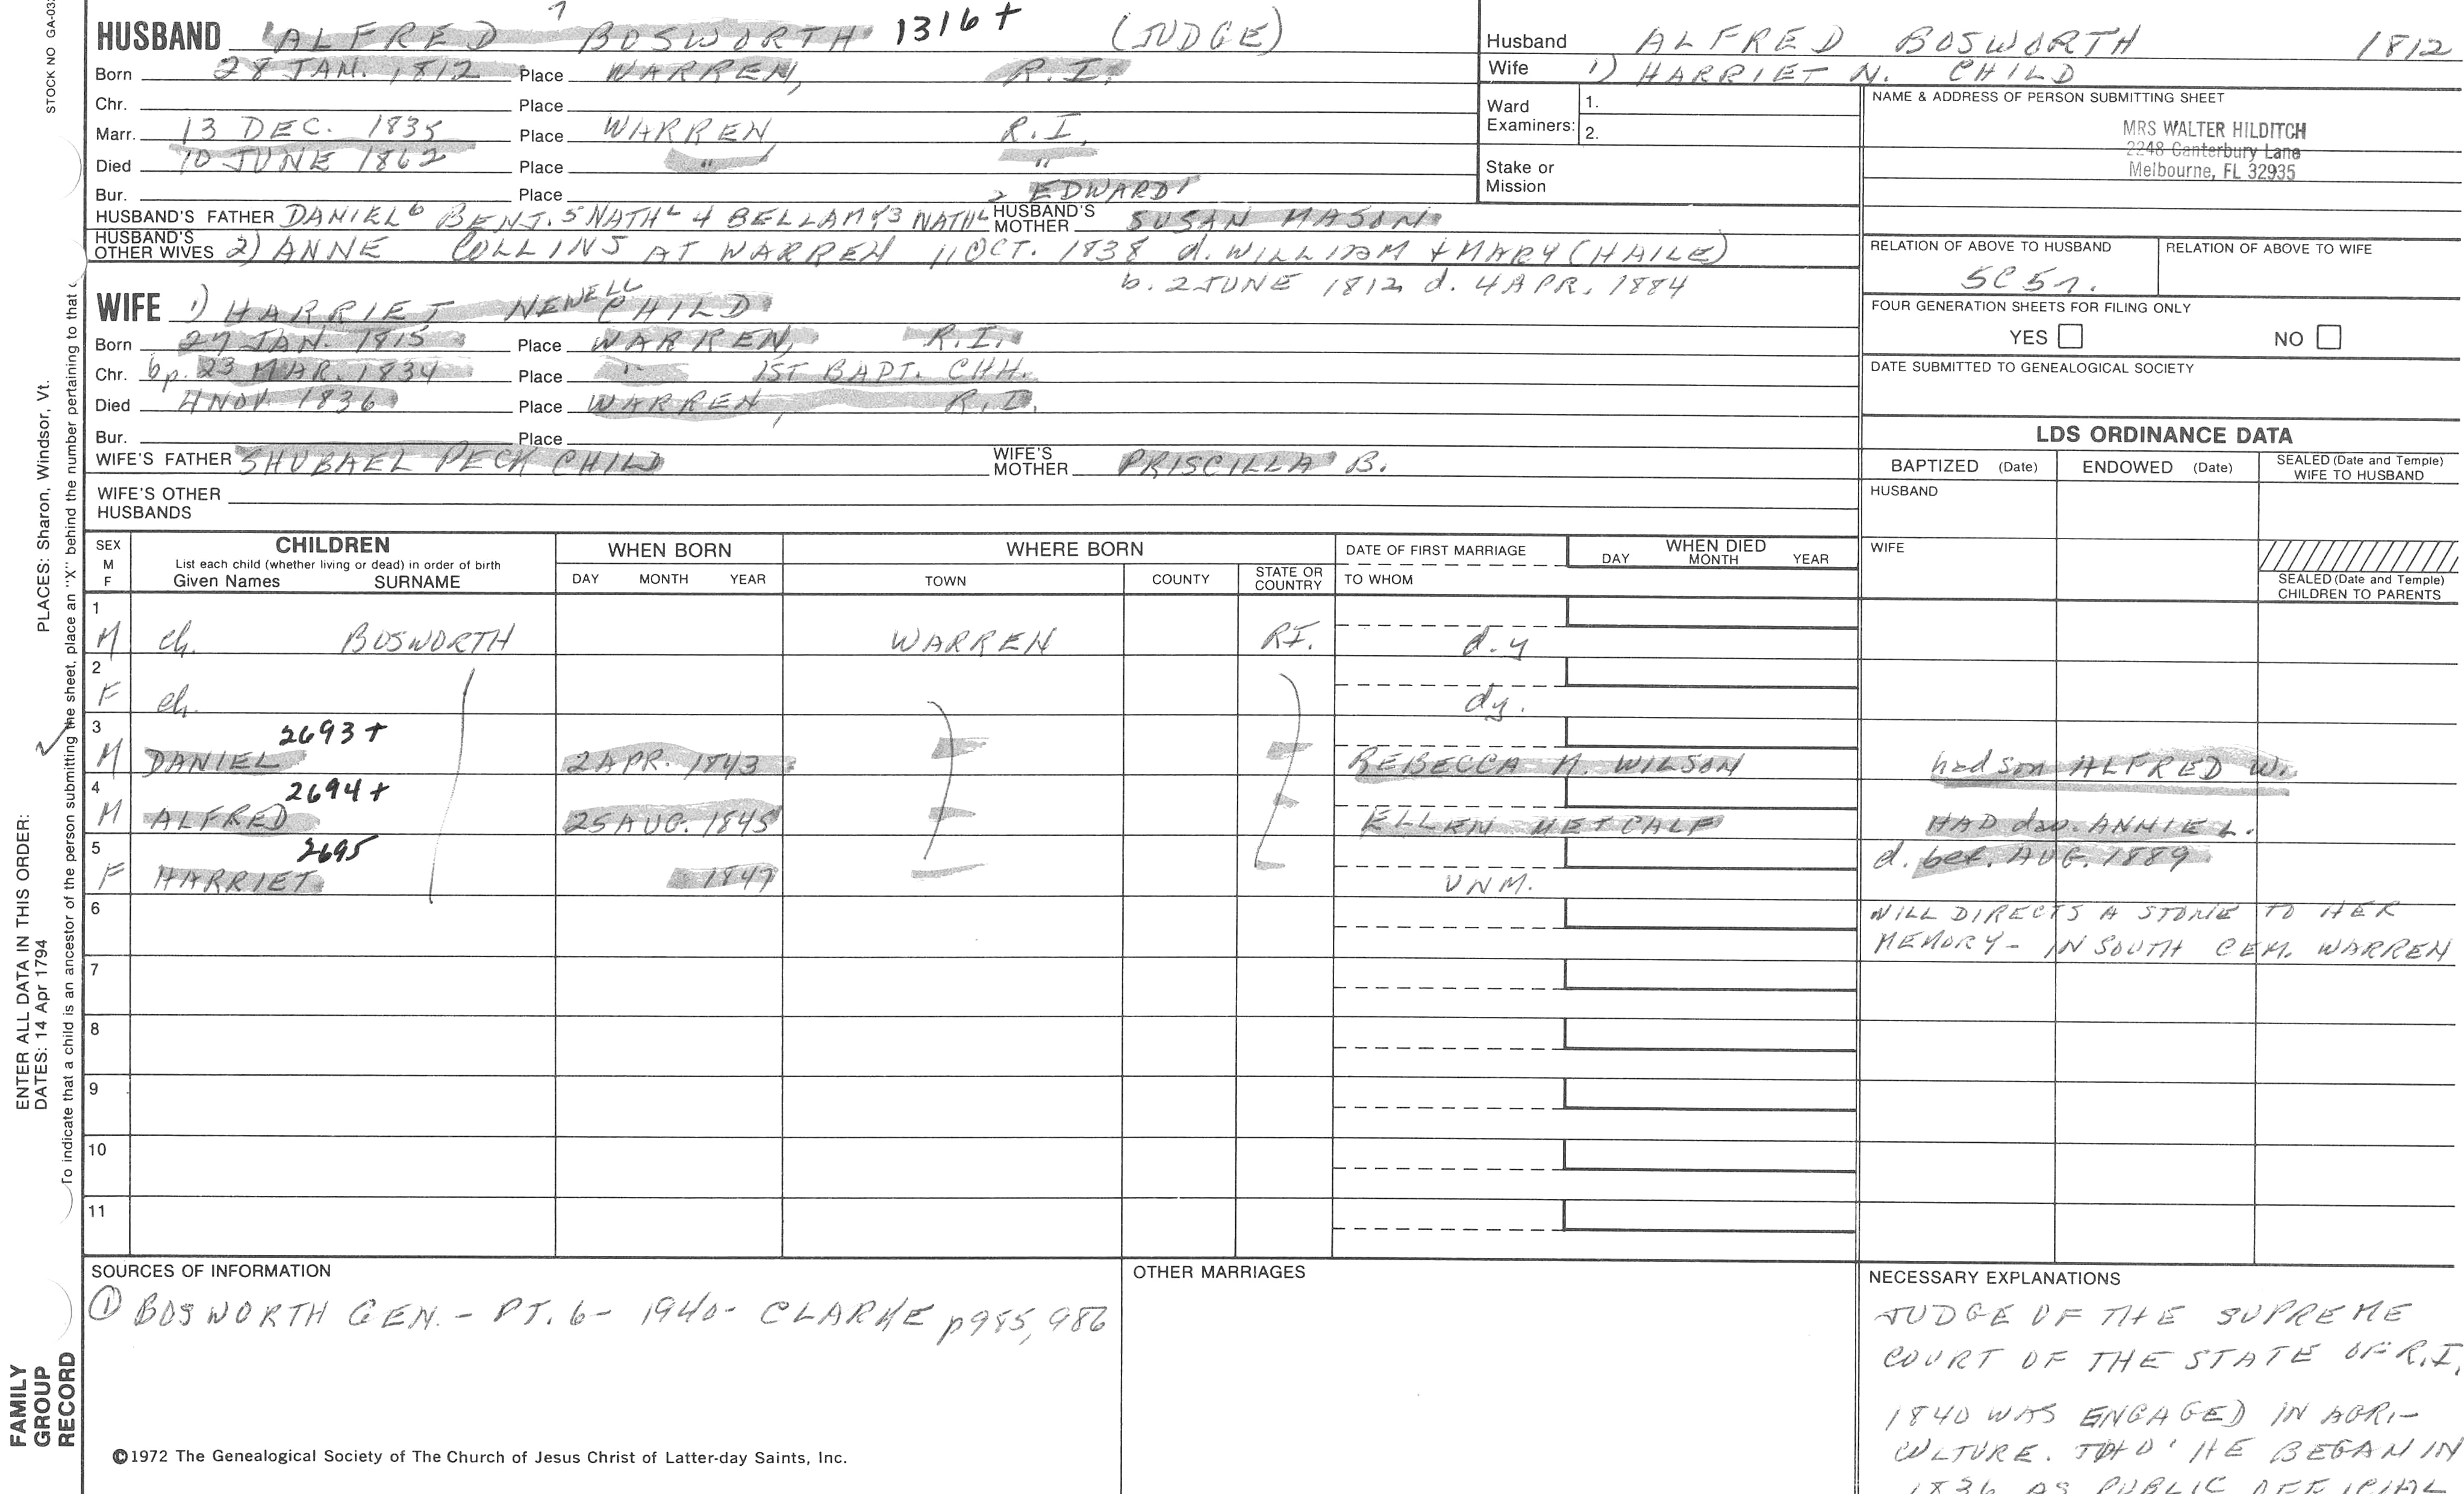 STOCK NO GA-03
HUSBAND ALFRED 7 BOSWORTH 1316+ (JUDGE)
Born 28 JAN. 1812 Place WARREN, R.I.
Chr. Place
Marr. 13 DEC. 1835 Place WARREN, R.I.
Died 10 JUNE 1862 Place " "
Bur. Place
2 EDWARD1
HUSBAND'S FATHER DANIEL6 BENJ.5 NATHL4 BELLAMY3 NATHL HUSBAND'S MOTHER SUSAN MASON
HUSBAND'S OTHER WIVES 2) ANNE COLLINS AT WARREN 11 OCT. 1838 d. WILLIAM + MARY (HAILE)
b. 2 JUNE 1812 d. 4 APR. 1884
WIFE 1) HARRIET NEWELL CHILD
Born 27 JAN. 1815 Place WARREN, R.I.
Chr. bp. 23 MAR. 1834 Place " 1ST BAPT. CHH.
Died 4 NOV. 1836 Place WARREN, R.I.
Bur. Place
WIFE'S FATHER SHUBAEL PECK CHILD WIFE'S MOTHER PRISCILLA B.
WIFE'S OTHER HUSBANDS
Husband ALFRED BOSWORTH 1812
Wife 1) HARRIET N. CHILD
Ward Examiners: 1.
2.
Stake or Mission
NAME & ADDRESS OF PERSON SUBMITTING SHEET
MRS WALTER HILDITCH
2248 Canterbury Lane
Melbourne, FL 32935
RELATION OF ABOVE TO HUSBAND RELATION OF ABOVE TO WIFE
5C5r.
FOUR GENERATION SHEETS FOR FILING ONLY
YES NO
DATE SUBMITTED TO GENEALOGICAL SOCIETY
LDS ORDINANCE DATA
BAPTIZED (Date) ENDOWED (Date) SEALED (Date and Temple) WIFE TO HUSBAND
HUSBAND
WIFE
SEALED (Date and Temple) CHILDREN TO PARENTS
SEX M F CHILDREN List each child (whether living or dead) in order of birth Given Names SURNAME WHEN BORN DAY MONTH YEAR WHERE BORN TOWN COUNTY STATE OR COUNTRY DATE OF FIRST MARRIAGE TO WHOM WHEN DIED DAY MONTH YEAR
1 M ch. BOSWORTH WARREN R.I. d.y
2 F ch. dy.
3 M DANIEL 2693+ 2 APR. 1843 REBECCA N. WILSON had son ALFRED W.
4 M ALFRED 2694+ 25 AUG. 1845 ELLEN METCALF HAD dau. ANNIE L.
5 F HARRIET 2695 1847 UNM. d. bef. AUG. 1889
6 WILL DIRECTS A STONE TO HER
MEMORY - IN SOUTH CEM. WARREN
7
8
9
10
11
SOURCES OF INFORMATION
① BOSWORTH GEN. - PT. 6 - 1940 - CLARKE p985, 986
OTHER MARRIAGES
NECESSARY EXPLANATIONS
JUDGE OF THE SUPREME
COURT OF THE STATE OF R.I.
1840 WAS ENGAGED IN AGRI-
CULTURE. THO' HE BEGAN IN
1836 AS PUBLIC OFFICIAL
©1972 The Genealogical Society of The Church of Jesus Christ of Latter-day Saints, Inc.
FAMILY GROUP RECORD
ENTER ALL DATA IN THIS ORDER:
DATES: 14 Apr 1794
PLACES: Sharon, Windsor, Vt.
To indicate that a child is an ancestor of the person submitting the sheet, place an "X" behind the number pertaining to that